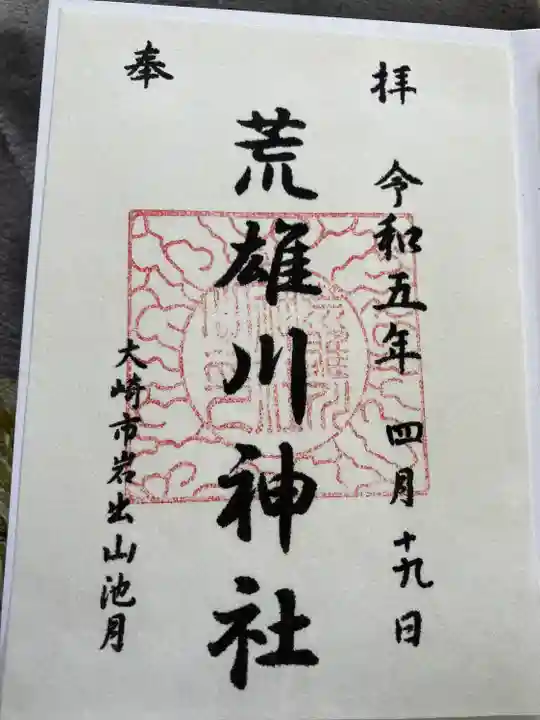 奉
拝
令和五年 四月十九日
荒雄川神社
大崎市岩出山池月